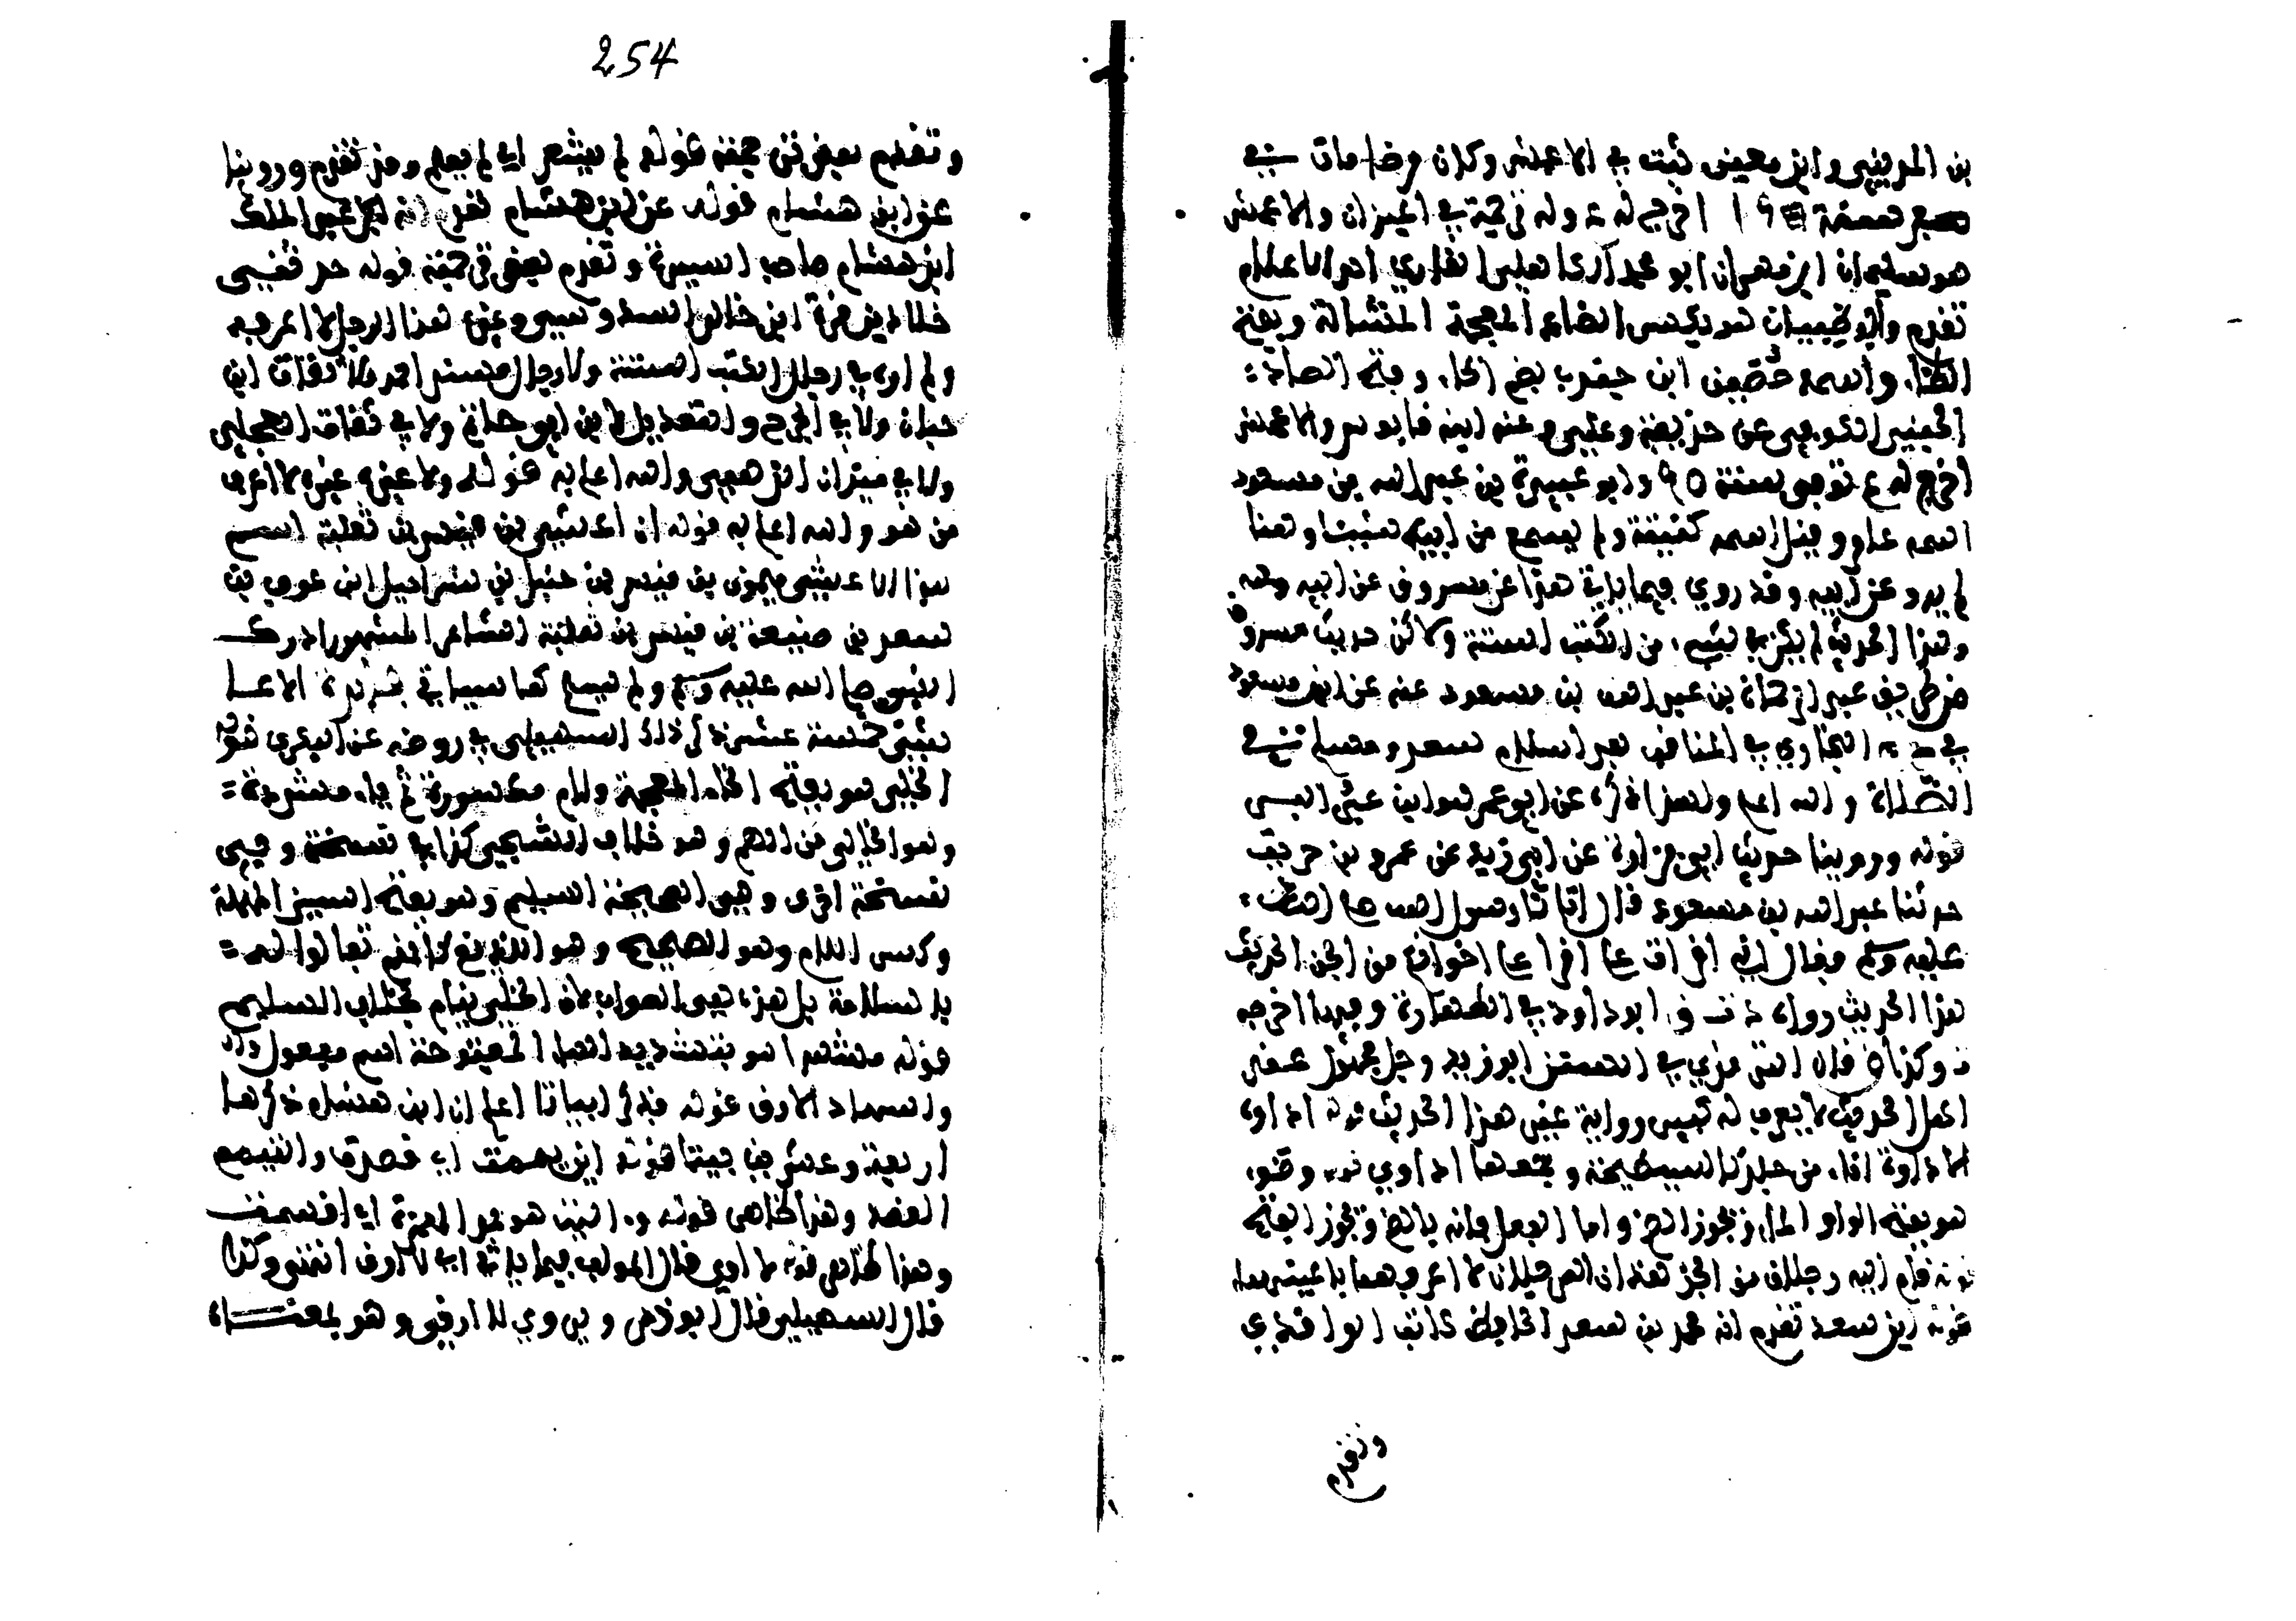 بن المديني وابن معين ثبت في الاعمش وكان
سنة اخرج له ع وله ترجمة في الميزان والاعمش
هو سليمان ابن مهران ابو محمد الكاهلي القاري احد الاعلام
تقدم وابو ظبيان هو بكسر الظاء المعجمة المشالة وبفتح
الظاء واسمه حُصَين ابن جندب بضم الحاء وفتح الصاد
الجنبي الكوفي عن حذيفة وعلي وعنه ابنه قابوس والاعمش
اخرج له ع توفي سنة ٩٥ وابو عبيدة بن عبد الله بن مسعود
اسمه عامر وقيل اسمه كنيته ولم يسمع من ابيه شيئا وهنا
لم يرو عن ابيه وقد روى فيما ياتي هذا عن مسروق عن ابيه
وهذا الحديث لم يكن في شيء من الكتب الستة ولاكن حديث مسروق
من طريق عبد الرحمان بن عبد الله بن مسعود عنه عن ابن مسعود
في البخاري في المناقب بعد اسلام سعد ومسلم في
الصلاة والله اعلم ولهذا ذكره عن ابو عمر هو ابن عبد البر
قوله وروينا حديث ابي فزارة عن ابي زيد عن عمرو بن حريث
حدثنا عبد الله بن مسعود قال اتانا رسول الله صلى الله
عليه وسلم فقال اني امرت ان اقرا على اخوانكم من الجن الحديث
هذا الحديث رواه د ت ق ابو داود في الطهارة وفيها اخرجه
ت وكذا ق قال الترمذي في ابو زيد رجل مجهول عند
اهل الحديث لا يعرف له كبير رواية غير هذا الحديث قوله اداوة
الاداوة اناء من جلد كالسطيحة وجمعها اداوى قوله وضوء
هو بفتح الواو الماء ويجوز الضم واما الفعل فانه بالضم ويجوز الفتح
قوله قام اليه رجلان من الجن هذان الرجلان لا اعرفهما باعيانهما
قوله ابن سعد تقدم انه محمد بن سعد الحافظ كاتب الواقدي
وتقدم
254
وتقدم بعض ترجمته قوله لم يشعر اي لم يعلم وقد تقدم وروينا
عن ابن هشام قوله عن ابن هشام تقدم انه عبد الملك
ابن هشام صاحب السيرة وتقدم بعض ترجمته قوله حدثني
خلاد بن قرة ابن خالد السدوسي وغيره هذا الرجل لا اعرفه
ولم اره في رجال الكتب الستة ولا رجال مسند احمد ولا ثقات ابن
حبان ولا في الجرح والتعديل لابن ابي حاتم ولا في ثقات العجلي
ولا في ميزان الذهبي والله اعلم به قوله وغيره غيره لا اعرف
من هو والله اعلم به قوله ان اعشى بن قيس بن ثعلبة اسم
هذا الاعشى ميمون بن قيس بن جندل بن شراحيل ابن عوف بن
سعد بن ضبيعة بن قيس بن ثعلبة الشاعر المشهور ادرك
النبي صلى الله عليه وسلم ولم يسلم كما سياتي
السهيلي في روضه عن البكري قوله
الخلي هو بفتح الخاء المعجمة ولام مكسورة ثم ياء مشددة
وهو الخالي من الهم وهو خلاف الشجي كذا في نسخة وفي
نسخة اخرى وهي الصحيحة السليم وهو بفتح السين المهملة
وكسر اللام وهو الصحيح وهو اللديغ كانهم تفالوا له
بالسلامة بل هذه هي الصواب لان الخلي ينام بخلاف السليم
قوله مسهدا هو بتشديد الهاء المفتوحة اسم مفعول
والسهاد الارق قوله فذكر ابياتا اعلم ان ابن هشام ذكرها
اربعة وعشرين بيتا قوله اين يممت اي قصدت والتيمم
القصد وهذا ظاهر قوله واليت هو بمد الهمزة اي اقسمت
وهذا ظاهر قوله لا اوي قال المولف فيما ياتي اي لا ارق انتهى وكذا
قال السهيلي قال ابو ذر ويروى لا ارثي وهو بمعناه